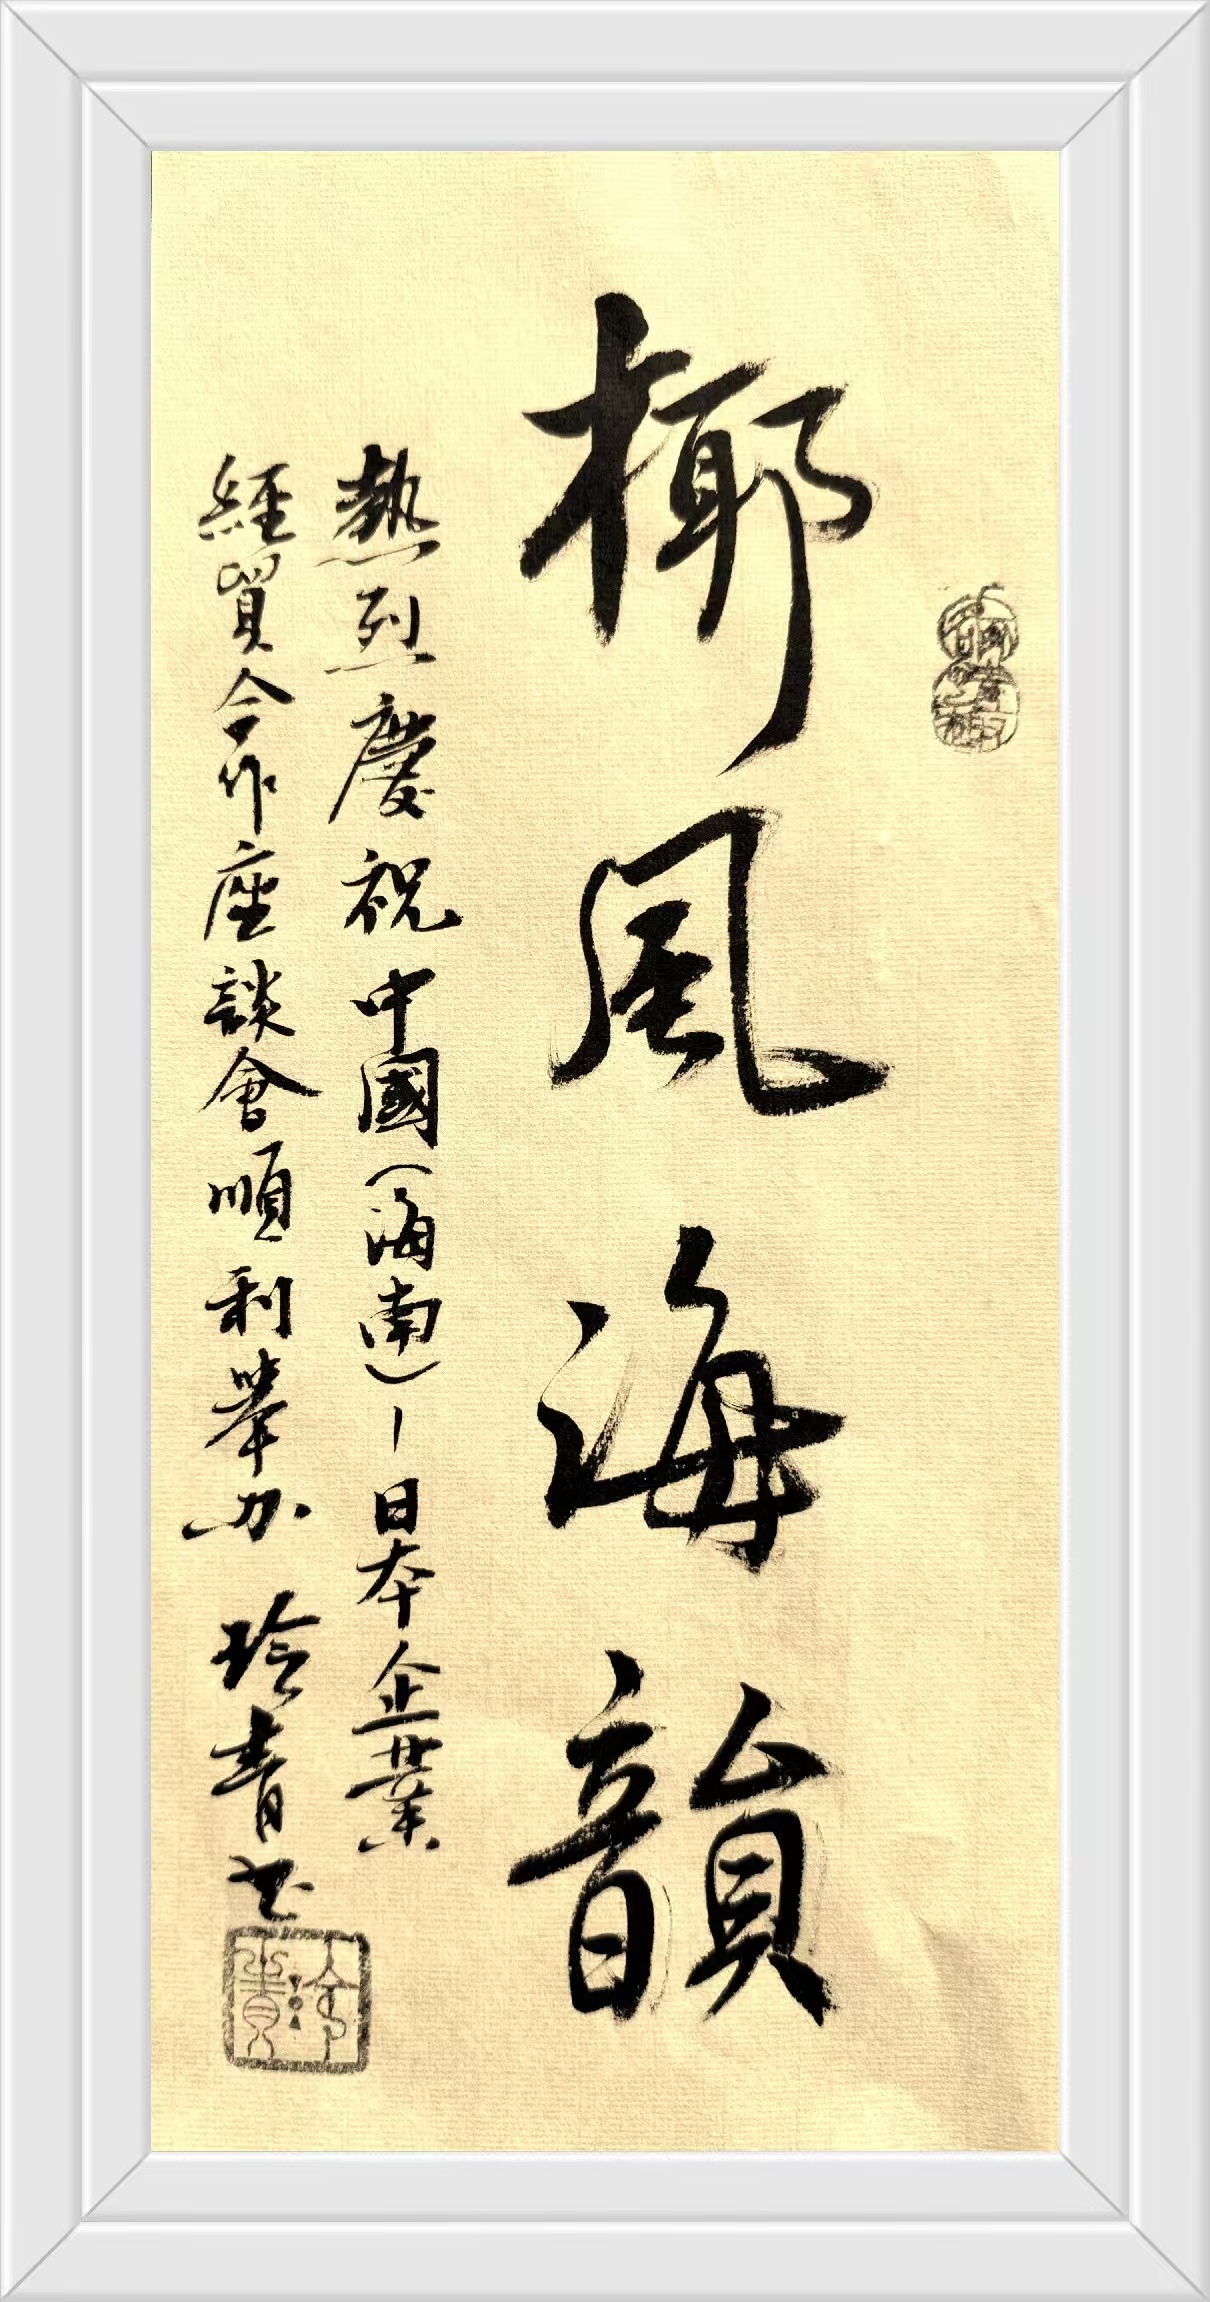 椰風海韻
熱烈慶祝中國(海南)-日本企業
經貿合作座談會順利舉办 玲青书